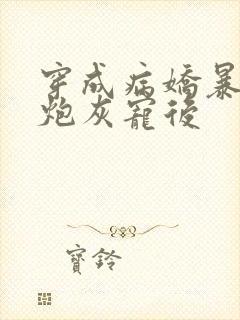 穿成病嬌暴
炮灰寵後
寶鈴